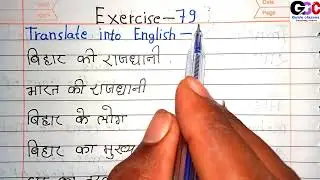 GDC
Exercise-79
Translate into English-
बिहार की राजधानी
भारत की राजधानी
बिहार के लोग
बिहार का मुख्य